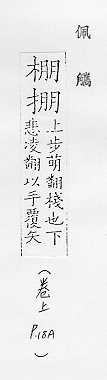 佩觿
棚掤上步萌翻棧也下
悲凌翻以手覆矢
(卷上 P.18A)